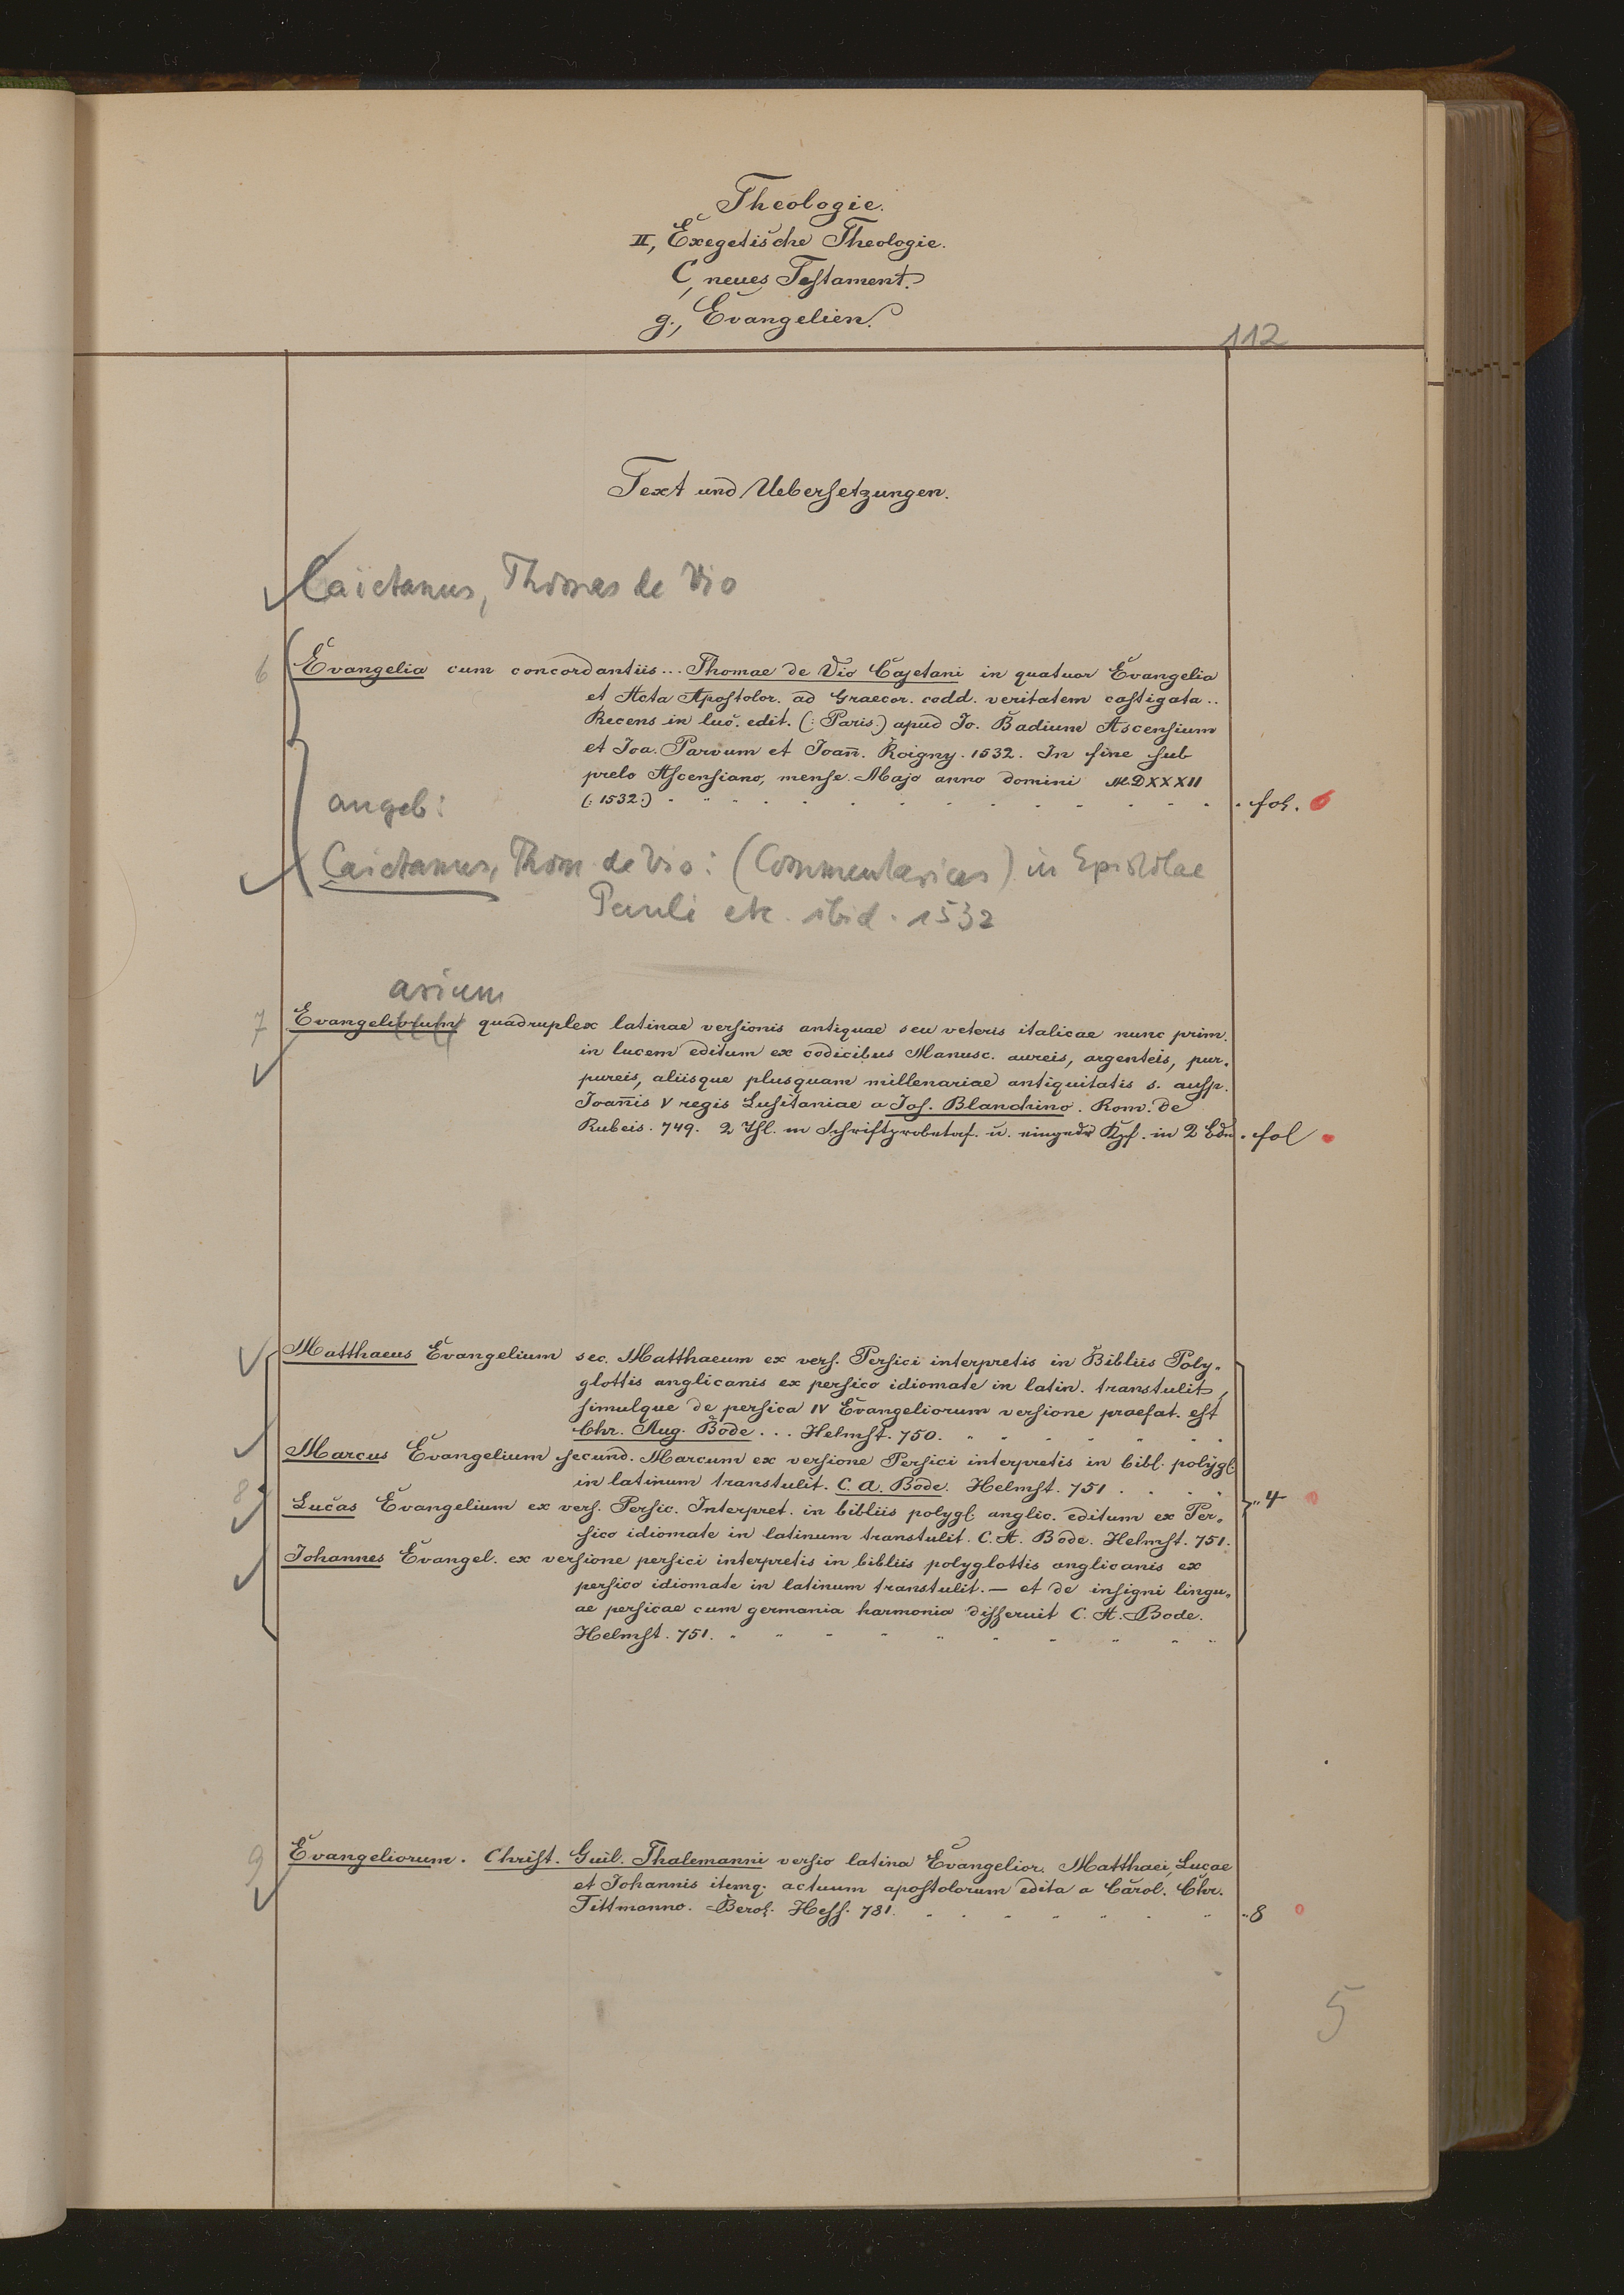 Theologie.
II, Exegetische Theologie.
C, neues Testament.
g., Evangelien.
112
Text und Uebersetzungen.
Caietanus, Thomas de Vio
6 Evangelia cum concordantiis... Thomae de Vio Cajetani in quatuor Evangelia
et Acta Apostolor. ad Graecor. codd. veritatem castigata..
Recens in luc. edit. (: Paris.) apud Jo. Badium Ascensium
et Joa. Parvum et Joan̄. Roigny. 1532. In fine sub
prelo Ascensiano, mense Majo anno domini M.DXXXII
(: 1532.) fol. 6
angeb:
Caietanus, Thom de Vio: (Commentarius) in Epistolae
Pauli etc. ibid. 1532
arium
7 Evangeliorum quadruplex latinae versionis antiquae seu veteris italicae nunc prim.
in lucem editum ex codicibus Manusc. aureis, argenteis, pur-
pureis, aliisque plusquam millenariae antiquitatis s. ausp.
Joan̄is V regis Lusitaniae a Jos. Blanchino. Rom. de
Rubeis. 749. 2 Thl. m Schriftprobetaf. u. eingedr Kpf. in 2 Bdn. fol
Matthaeus Evangelium sec. Matthaeum ex vers. Persici interpretis in Bibliis Poly-
glottis anglicanis ex persico idiomate in latin. transtulit,
simulque de persica IV Evangeliorum versione praefat. est
Chr. Aug. Bode... Helmst. 750.
Marcus Evangelium secund. Marcum ex versione Persici interpretis in bibl. polygl.
in latinum transtulit. C. A. Bode. Helmst. 751
8 Lucas Evangelium ex vers. Persic. Interpret. in bibliis polygl. anglic. editum ex Per- 4
sico idiomate in latinum transtulit. C. A. Bode. Helmst. 751.
Johannes Evangel. ex versione persici interpretis in bibliis polyglottis anglicanis ex
persico idiomate in latinum transtulit. — et de insigni lingu-
ae persicae cum germania harmonia disseruit C. A. Bode.
Helmst. 751.
9 Evangeliorum. Christ. Guil. Thalemanni versio latina Evangelior. Matthaei, Lucae
et Johannis itemq. actuum apostolorum edita a Carol. Chr.
Tittmanno. Berol. Hess. 781. 8
5